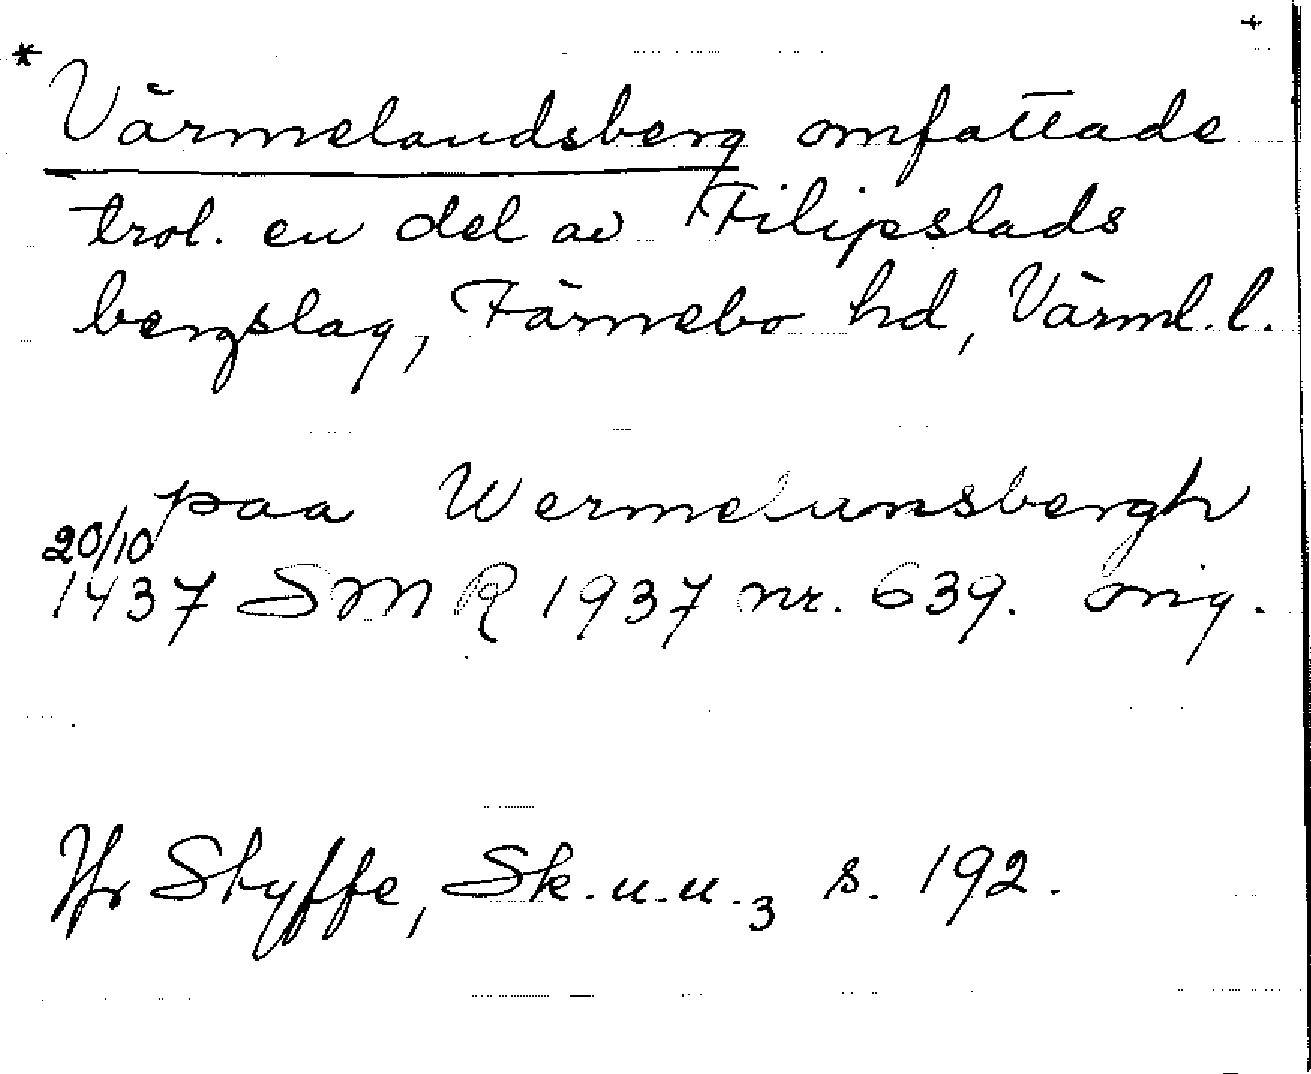 * Värmelandsberg omfattade +
trol. en del av Filipstads
bergslag, Färnebo hd, Värml. l.
paa Wermelunsbergh
20/10
1437 SMR 1937 nr. 639. orig.
Jfr Styffe, Sk.u.u.3 s. 192.